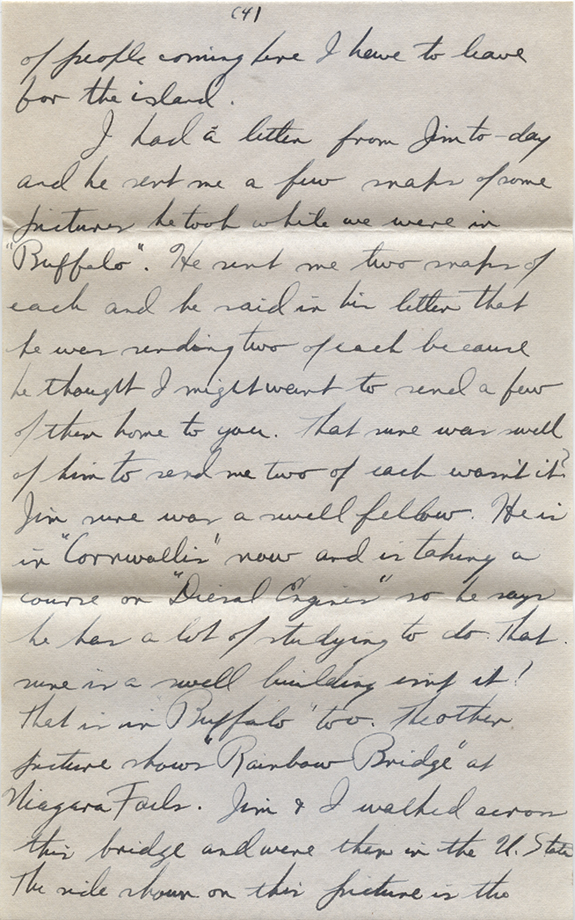 (4)
of people coming here I have to leave
for the island.
I had a letter from Jim to-day
and he sent me a few snaps of some
pictures he took while we were in
"Buffalo". He sent me two snaps of
each and he said in his letter that
he was sending two of each because
he thought I might want to send a few
of them home to you. That sure was swell
of him to send me two of each wasn't it?
Jim sure was a swell fellow. He is
in "Cornwallis" now and is taking a
course on "Diesal Engines" so he says
he has a lot of studying to do. That
sure is a swell building isn't it!
That is in Buffalo too. The other
picture shows "Rainbow Bridge" at
Niagara Falls. Jim & I walked across
this bridge and were then in the U. State
The side shown on this picture is the